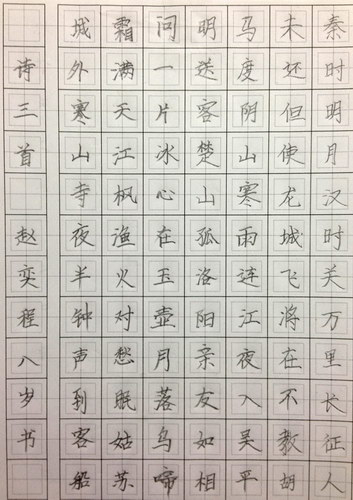 秦时明月汉时关万里长征人
未还但使龙城飞将在不教胡
马度阴山寒雨连江夜入吴平
明送客楚山孤洛阳亲友如相
问一片冰心在玉壶月落乌啼
霜满天江枫渔火对愁眠姑苏
城外寒山寺夜半钟声到客船
诗三首 赵奕程八岁书